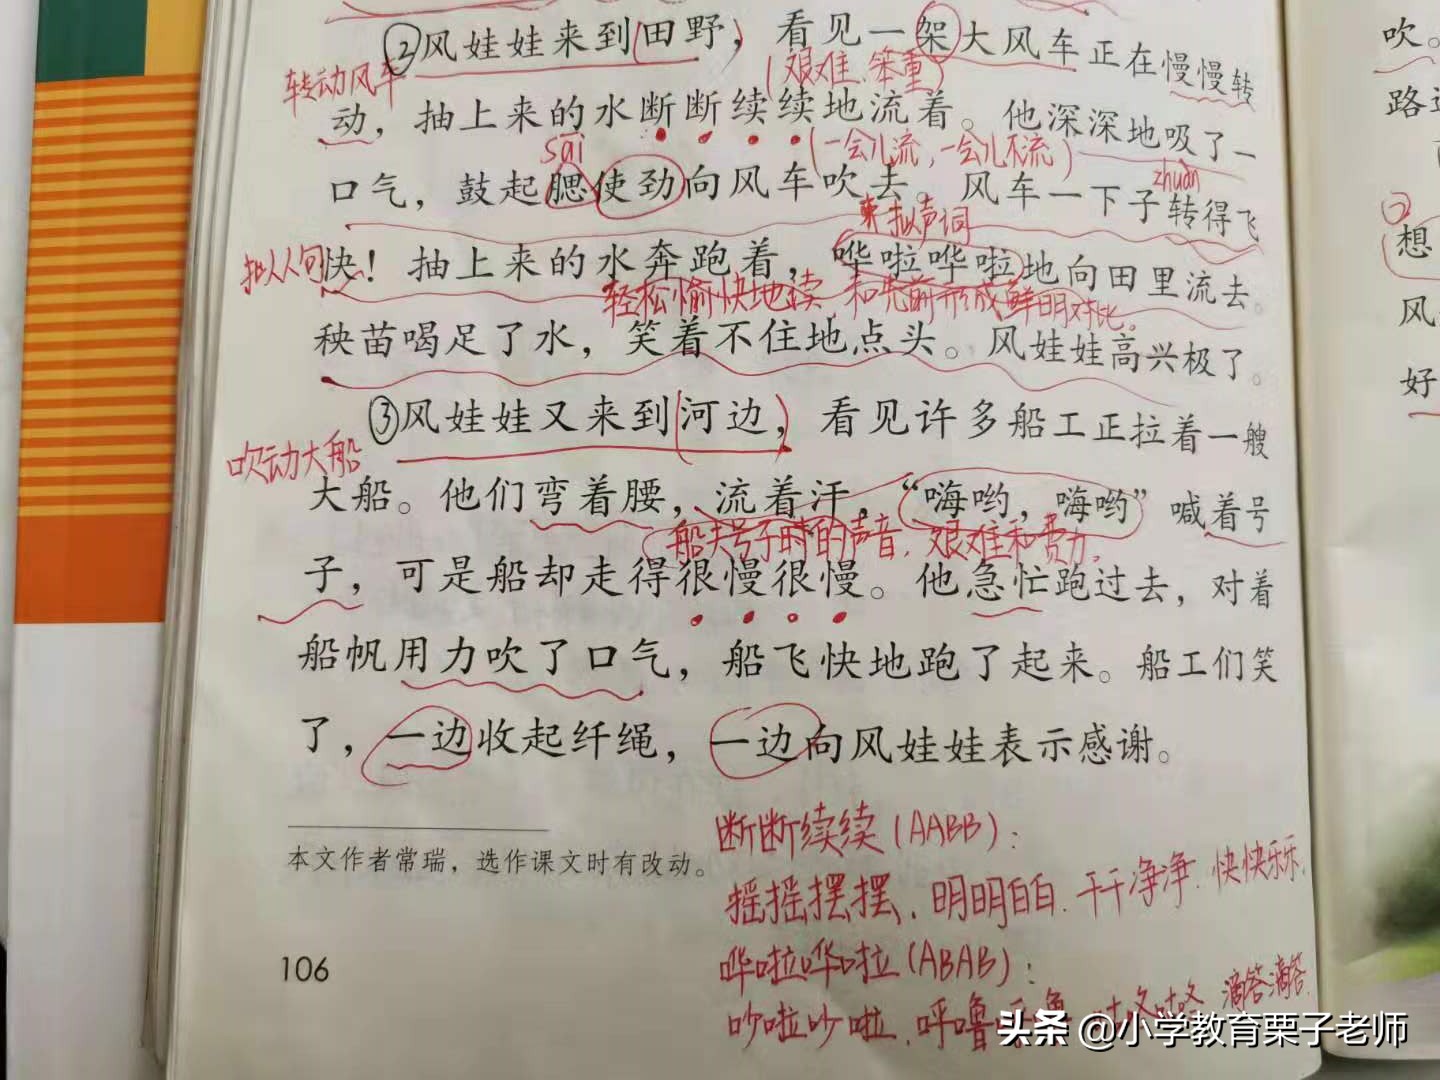 ②风娃娃来到田野，看见一架大风车正在慢慢转
转动风车
(艰难、笨重)
动，抽上来的水断断续续地流着。他深深地吸了一
sāi
(一会儿流，一会儿不流)
zhuàn
口气，鼓起腮使劲向风车吹去。风车一下子转得飞
拟声词
拟人句
快！抽上来的水奔跑着，哗啦哗啦地向田里流去。
轻松愉快地读，和先前形成鲜明对比。
秧苗喝足了水，笑着不住地点头。风娃娃高兴极了。
③风娃娃又来到河边，看见许多船工正拉着一艘
吹动大船
大船。他们弯着腰，流着汗，“嗨哟，嗨哟”喊着号
船夫号子时的声音，艰难和费力。
子，可是船却走得很慢很慢。他急忙跑过去，对着
船帆用力吹了口气，船飞快地跑了起来。船工们笑
了，一边收起纤绳，一边向风娃娃表示感谢。
本文作者常瑞，选作课文时有改动。
断断续续(AABB)：
摇摇摆摆、明明白白、干干净净、快快乐乐、
哗啦哗啦(ABAB)：
吵啦吵啦、呼噜呼噜 滴答滴答
106
吹。
路
②
想
风
好
头条 @小学教育栗子老师